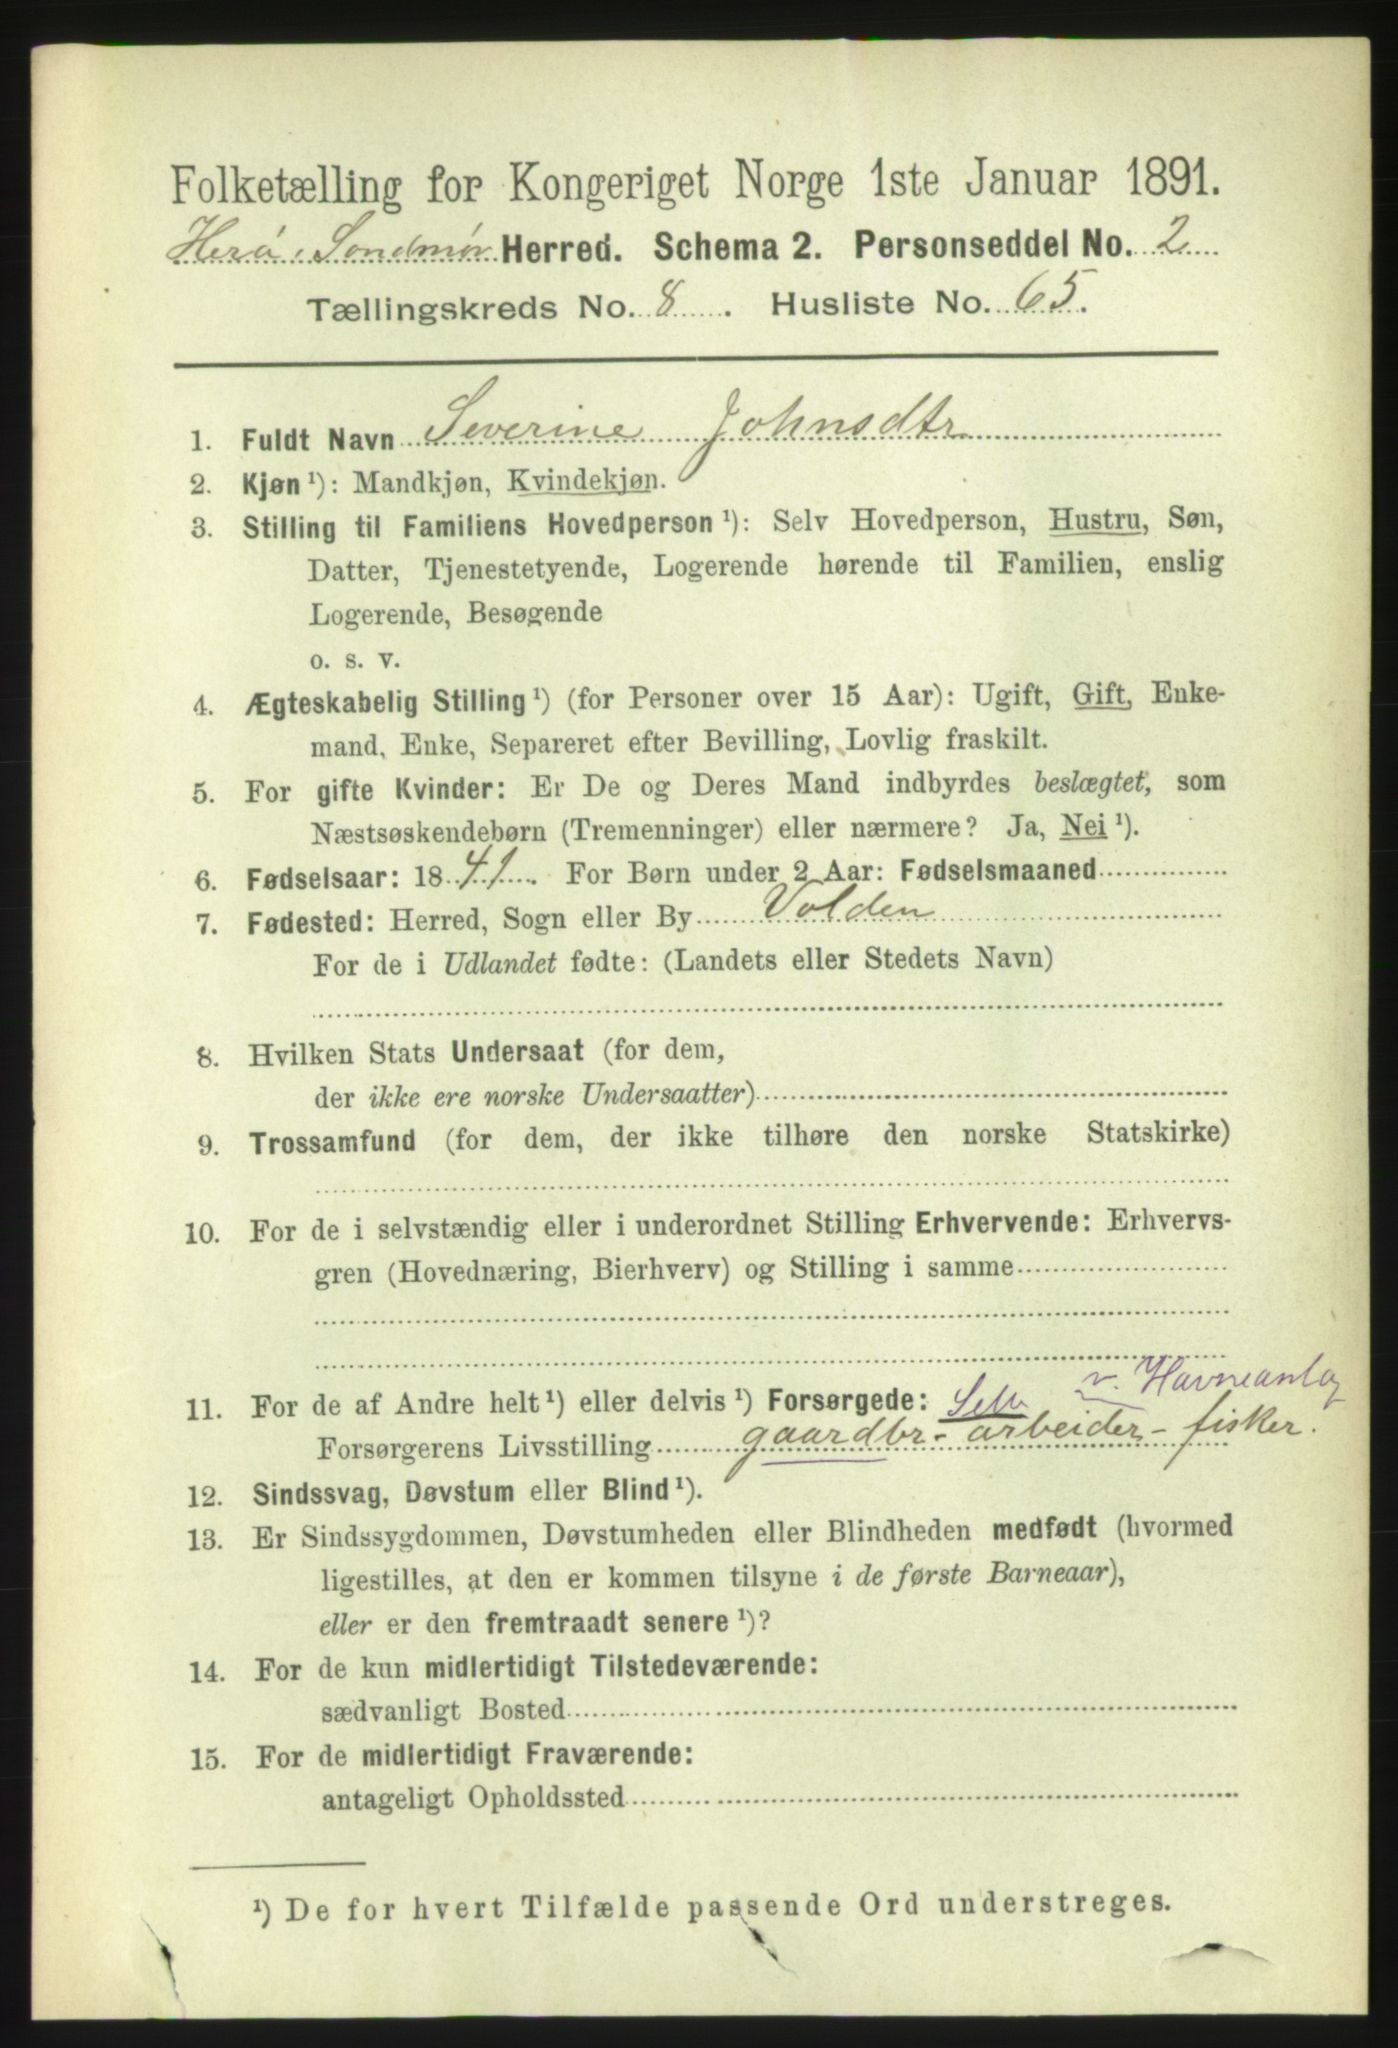 Folketælling for Kongeriget Norge 1ste Januar 1891.
Herø, Sondmør Herred. Schema 2. Personseddel No. 2
Tællingskreds No. 8. Husliste No. 65.
1. Fuldt Navn Severine Johnsdtr
2. Kjøn ¹): Mandkjøn, Kvindekjøn.
3. Stilling til Familiens Hovedperson ¹): Selv Hovedperson, Hustru, Søn,
Datter, Tjenestetyende, Logerende hørende til Familien, enslig
Logerende, Besøgende
o. s. v.
4. Ægteskabelig Stilling ¹) (for Personer over 15 Aar): Ugift, Gift, Enke-
mand, Enke, Separeret efter Bevilling, Lovlig fraskilt.
5. For gifte Kvinder: Er De og Deres Mand indbyrdes beslægtet, som
Næstsøskendebørn (Tremenninger) eller nærmere? Ja, Nei ¹).
6. Fødselsaar: 1841. For Børn under 2 Aar: Fødselsmaaned
7. Fødested: Herred, Sogn eller By Volden
For de i Udlandet fødte: (Landets eller Stedets Navn)
8. Hvilken Stats Undersaat (for dem,
der ikke ere norske Undersaatter)
9. Trossamfund (for dem, der ikke tilhøre den norske Statskirke)
10. For de i selvstændig eller i underordnet Stilling Erhvervende: Erhvervs-
gren (Hovednæring, Bierhverv) og Stilling i samme
11. For de af Andre helt ¹) eller delvis ¹) Forsørgede: Selv v. Havneanlæg
Forsørgerens Livsstilling gaardbr - arbeider - fisker.
12. Sindssvag, Døvstum eller Blind ¹).
13. Er Sindssygdommen, Døvstumheden eller Blindheden medfødt (hvormed
ligestilles, at den er kommen tilsyne i de første Barneaar),
eller er den fremtraadt senere ¹)?
14. For de kun midlertidigt Tilstedeværende:
sædvanligt Bosted
15. For de midlertidigt Fraværende:
antageligt Opholdssted
¹) De for hvert Tilfælde passende Ord understreges.